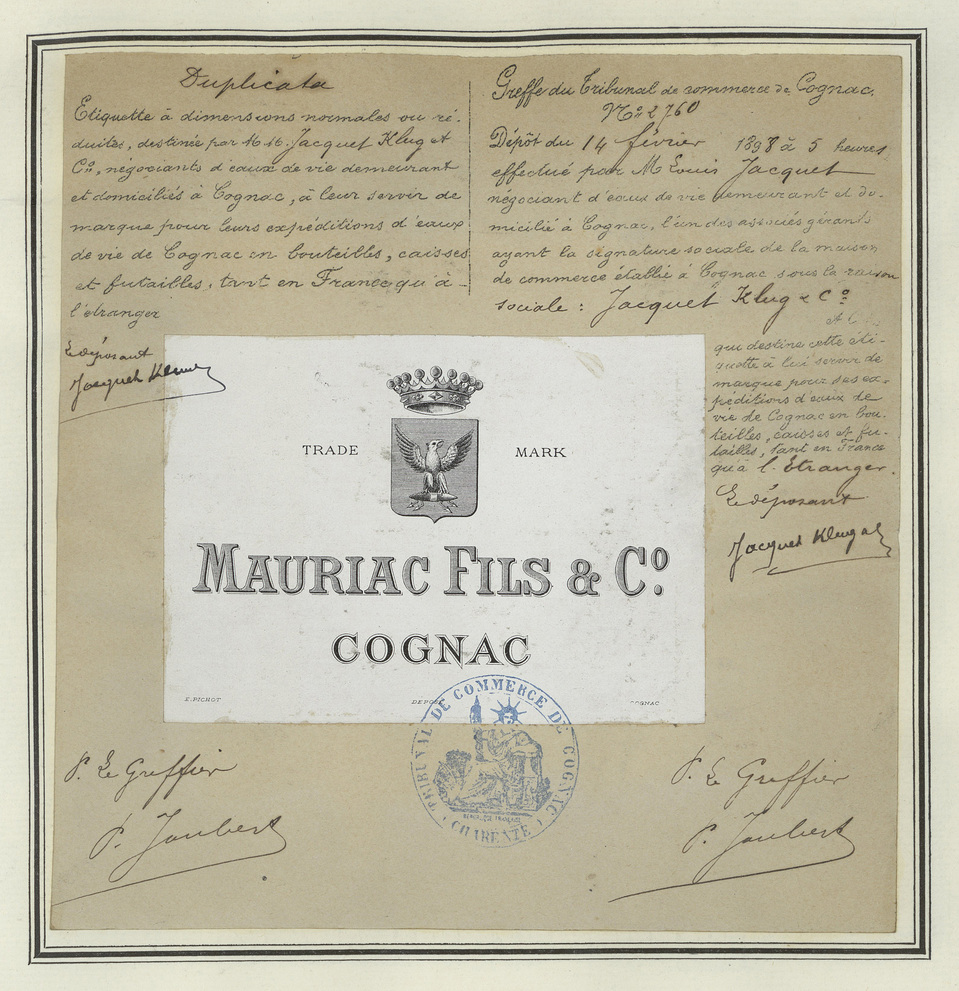 Duplicata
Etiquette à dimensions normales ou ré-
duites, destinée par M.M. Jacquet Klug et
Cº, négociants d'eaux de vie demeurant
et domiciliés à Cognac, à leur servir de
marque pour leurs expéditions d'eaux
de vie de Cognac en bouteilles, caisses
et futailles, tant en France qu'à -
l'étranger
Le déposant
Jacquet Klug
Greffe du Tribunal de commerce de Cognac.
Nº 2760
Dépôt du 14 février 1898 à 5 heures
effectué par M Louis Jacquet
négociant d'eaux de vie demeurant et do-
micilié à Cognac, l'un des associés gérants
ayant la signature sociale de la maison
de commerce établie à Cognac sous la raison
sociale : Jacquet Klug & Cº
qui destine cette éti-
quette à lui servir de
marque pour ses ex-
péditions d'eaux de
vie de Cognac en bou-
teilles, caisses et fu-
tailles, tant en France
qu'à l'Etranger.
Le déposant
Jacquet Klug
TRADE MARK
MAURIAC FILS & Cº
COGNAC
E. PICHOT DÉPOSÉ COGNAC
TRIBUNAL DE COMMERCE DE COGNAC
CHARENTE
P. Le Greffier
P. Joubert
P. Le Greffier
P. Joubert